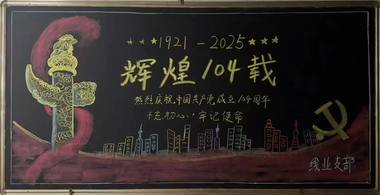 ★★★1921-2025★★★
辉煌104载
热烈庆祝中国共产党成立104周年
不忘初心·牢记使命
线业支部